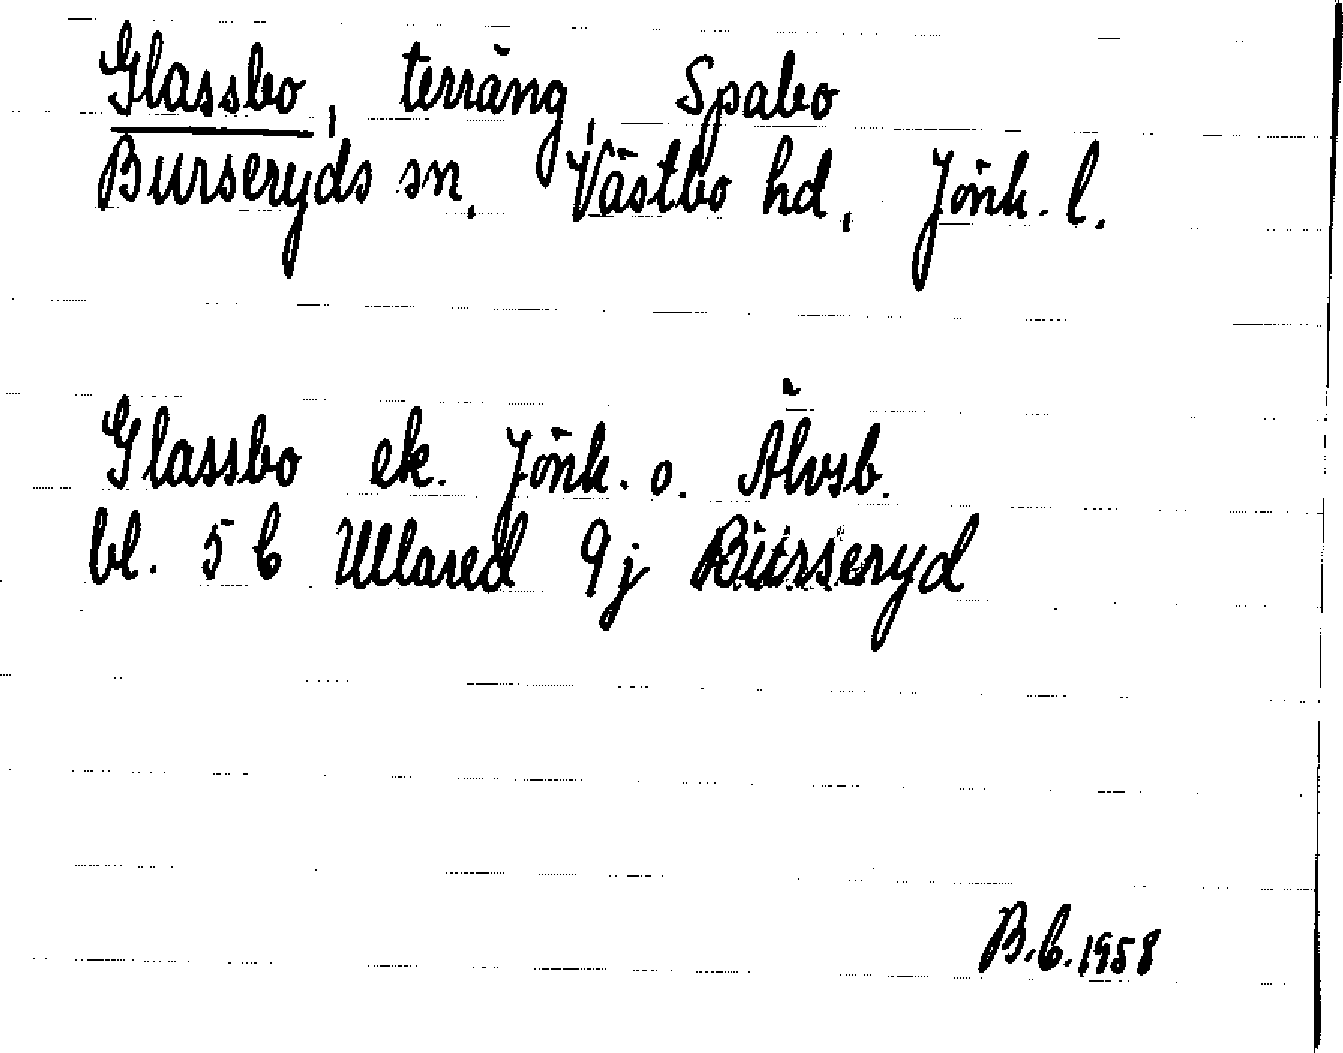 Glassbo, terräng, Spabo
Burseryds sn, Västbo hd, Jönk. l.
Glassbo ek. Jönk. o. Älvsb.
bl. 5 C Ullared 9j Burseryd
B.C. 1958